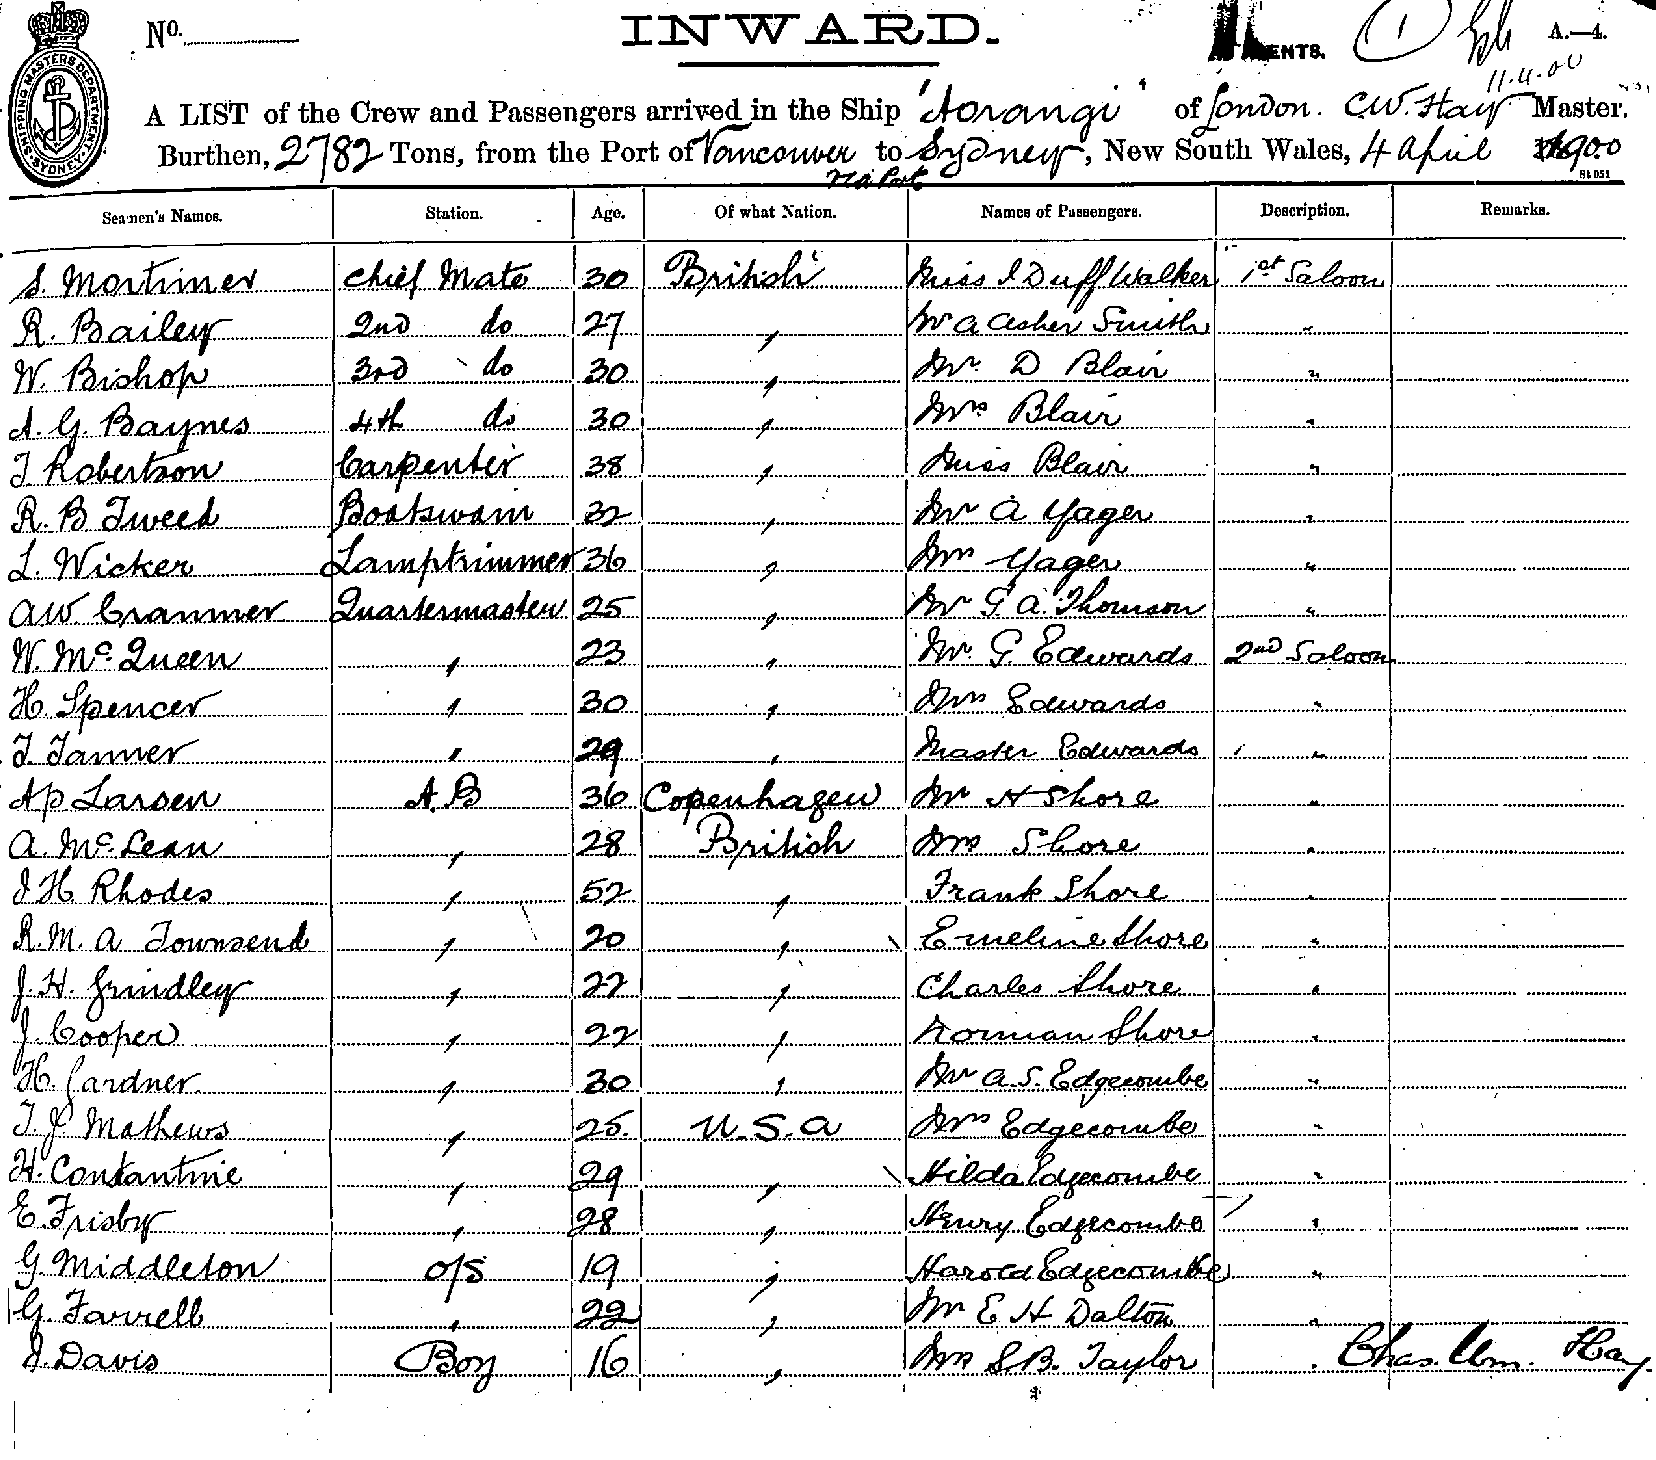 No.
INWARD.
ENTS.
1
A.—4.
11.4.00
A LIST of the Crew and Passengers arrived in the Ship 'Aorangi' of London. C.W. Hay Master.
Burthen, 2782 Tons, from the Port of Vancouver to Sydney, New South Wales, 4 April 1900
via Ports
SHIPPING MASTERS DEPARTMENT SYDNEY
Seamen's Names. Station. Age. Of what Nation. Names of Passengers. Description. Remarks.
S. Mortimer Chief Mate 30 British Miss I Duff Walker 1st Saloon
R. Bailey 2nd do 27 " Mr A Asher Smith "
W. Bishop 3rd do 30 " Mr. D Blair "
A. G. Baynes 4th do 30 " Mrs Blair "
J Robertson Carpenter 38 " Miss Blair "
R. B Tweed Boatswain 32 " Mr A Yager "
L. Wicker Lamptrimmer 36 " Mrs Yager "
AW Cranmer Quartermaster 25 " Mr G A Thomson "
W. McQueen " 23 " Mr. G Edwards 2nd Saloon
H. Spencer " 30 " Mrs Edwards "
T. Tanner " 29 " Master Edwards "
AP Larsen A.B 36 Copenhagen Mr H Shore "
A. McLean " 28 British Mrs Shore "
J H Rhodes " 52 " Frank Shore "
R. M. A Townsend " 20 " Emeline Shore "
J. H. Grindley " 22 " Charles Shore "
J. Cooper " 22 " Norman Shore "
H. Gardner " 30 " Mr A S. Edgecombe "
T. J. Mathews " 25 U.S.A Mrs Edgecombe "
H. Constantine " 29 " Hilda Edgecombe "
E. Frisby " 28 " Henry Edgecombe "
G. Middleton O/S 19 " Harold Edgecombe "
G. Farrell " 22 " Mr E H Dalton "
J. Davis Boy 16 " Mrs S.B. Taylor " Chas. Wm. Hay.